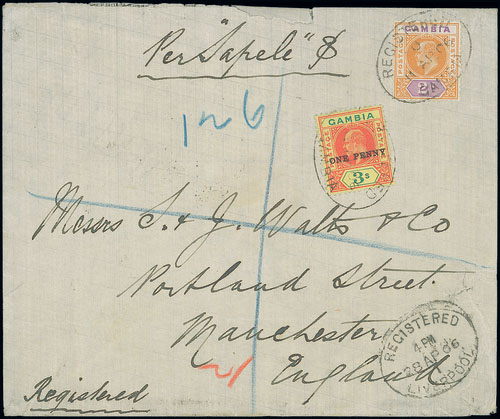 Per "Sapele" &
REGISTERED
GAMBIA
POSTAGE
126
GAMBIA
POSTAGE POSTAGE
ONE PENNY
3s
Messrs S. & J. Watts & Co
Portland Street.
Manchester
England
REGISTERED
4 PM
28 AP 06
LIVERPOOL
Registered